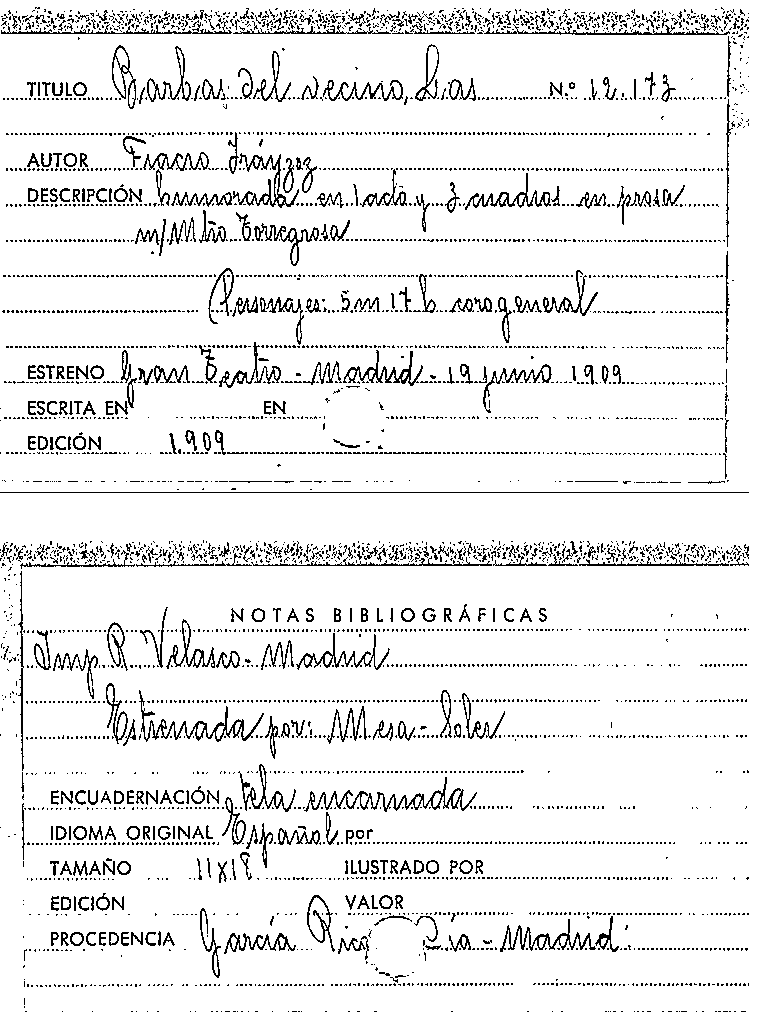 TITULO Barbas del vecino, Las N.º 12.173
AUTOR Fiacro Iráyzoz
DESCRIPCIÓN humorada en 1 acto y 3 cuadros en prosa
m/ Mtro Torregrosa
Personajes: 5 m 17 h coro general
ESTRENO Gran Teatro - Madrid - 19 junio 1909
ESCRITA EN EN
EDICIÓN 1.909
NOTAS BIBLIOGRÁFICAS
Imp R. Velasco - Madrid
Estrenada por: Mesa - Soler
ENCUADERNACIÓN tela encarnada
IDIOMA ORIGINAL Español por
TAMAÑO 11x18 ILUSTRADO POR
EDICIÓN VALOR
PROCEDENCIA García Rico Cía - Madrid